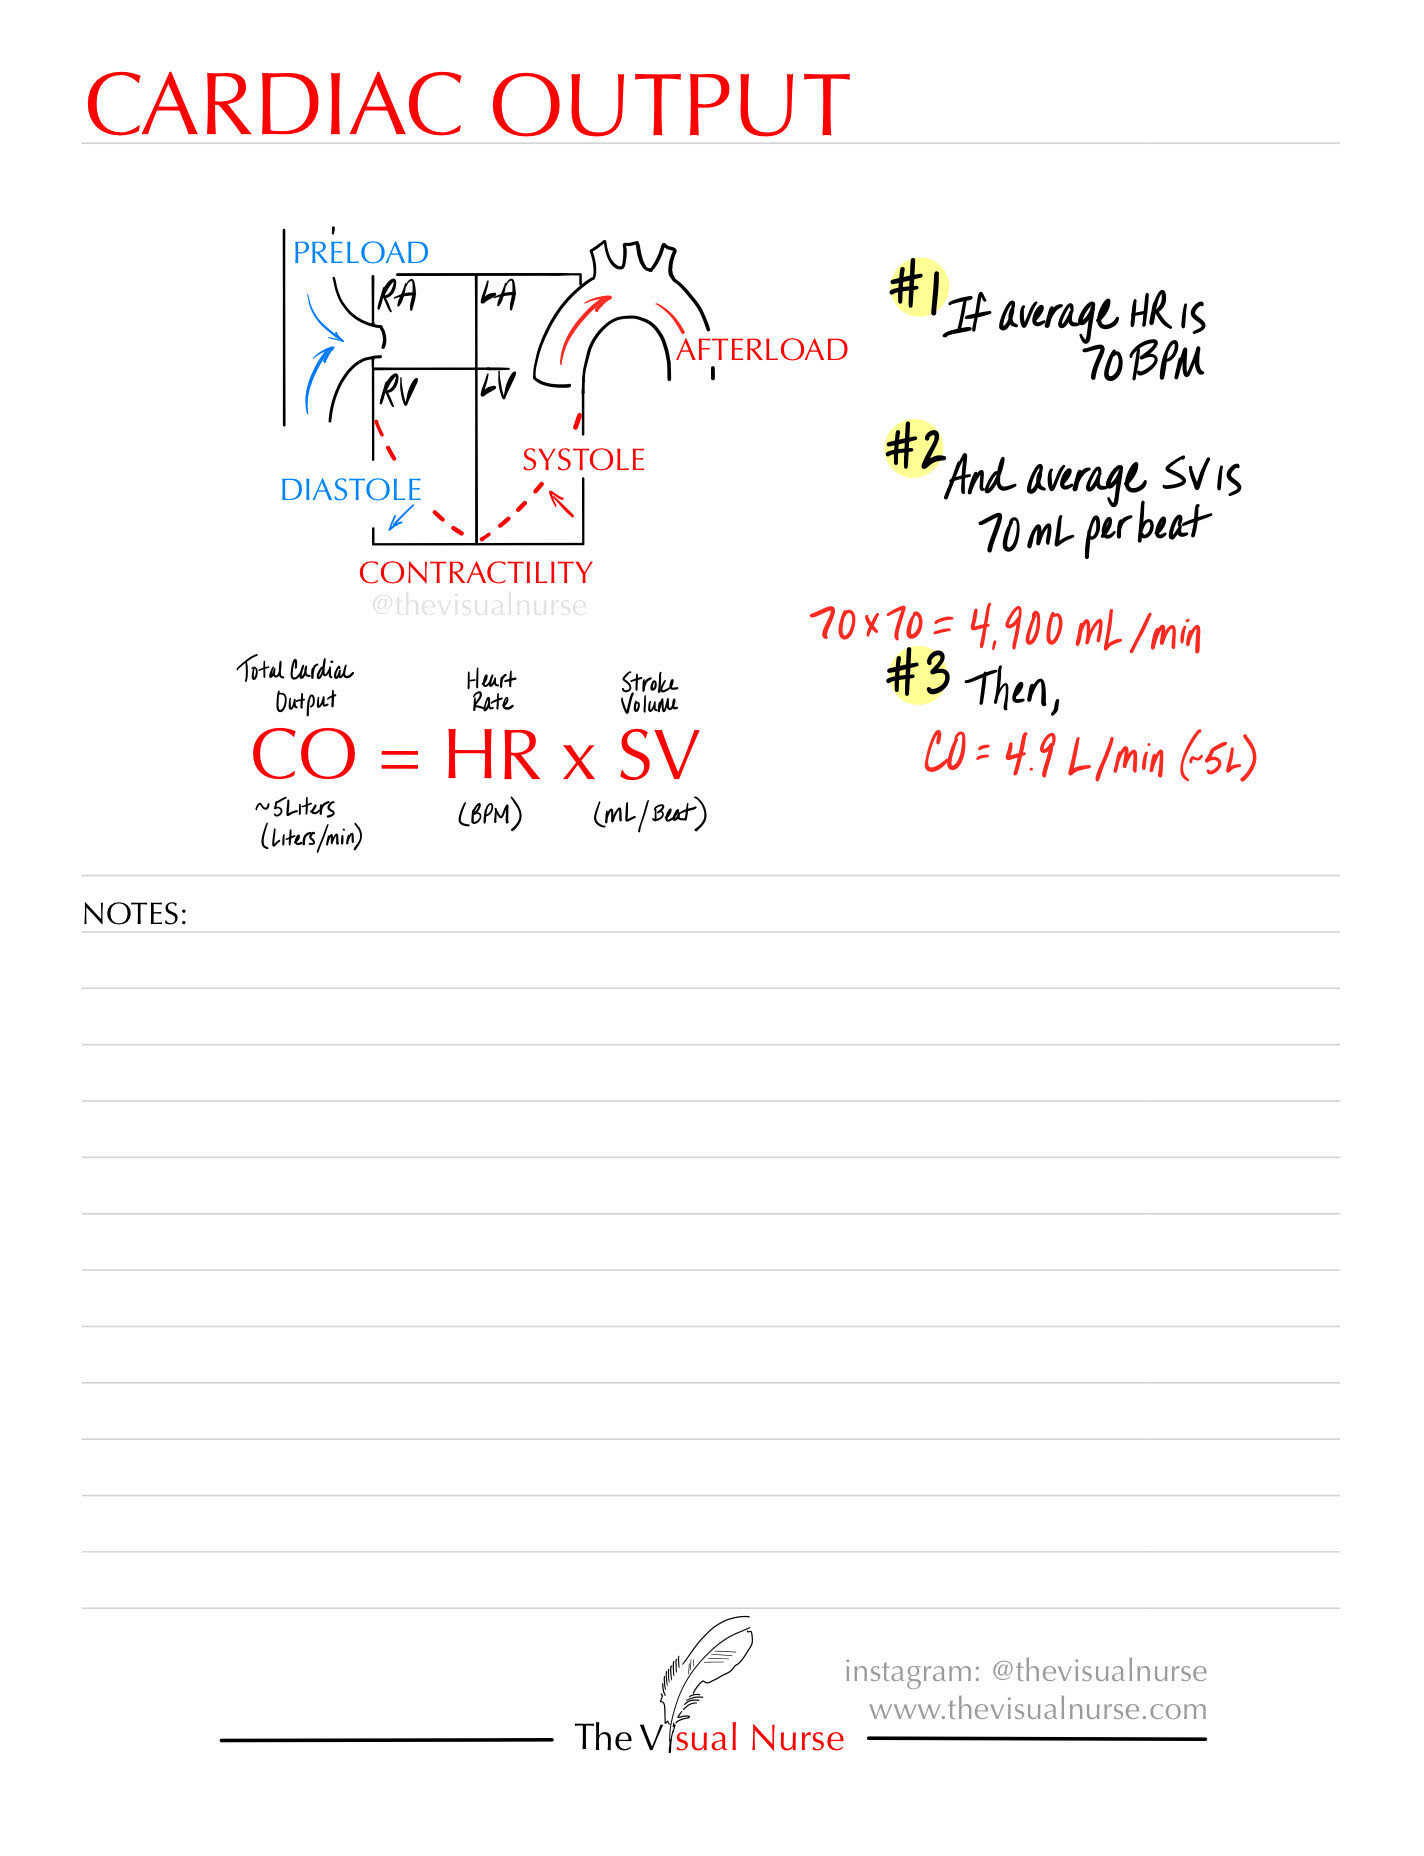 CARDIAC OUTPUT
PRELOAD
RA
LA
AFTERLOAD
RV
LV
SYSTOLE
DIASTOLE
CONTRACTILITY
@thevisualnurse
#1 If average HR is
70 BPM
#2 And average SV is
70 mL per beat
70 x 70 = 4,900 mL/min
#3 Then,
CO = 4.9 L/min (~5L)
Total Cardiac
Output
Heart
Rate
Stroke
Volume
CO = HR x SV
~5 Liters
(Liters/min)
(BPM)
(mL/Beat)
NOTES:
instagram: @thevisualnurse
www.thevisualnurse.com
The Visual Nurse